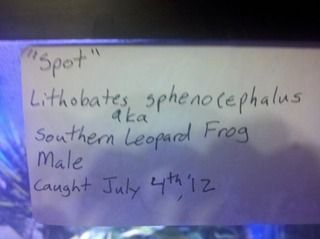 "Spot"
Lithobates sphenocephalus
aka
Southern Leopard Frog
Male
Caught July 4th, '12